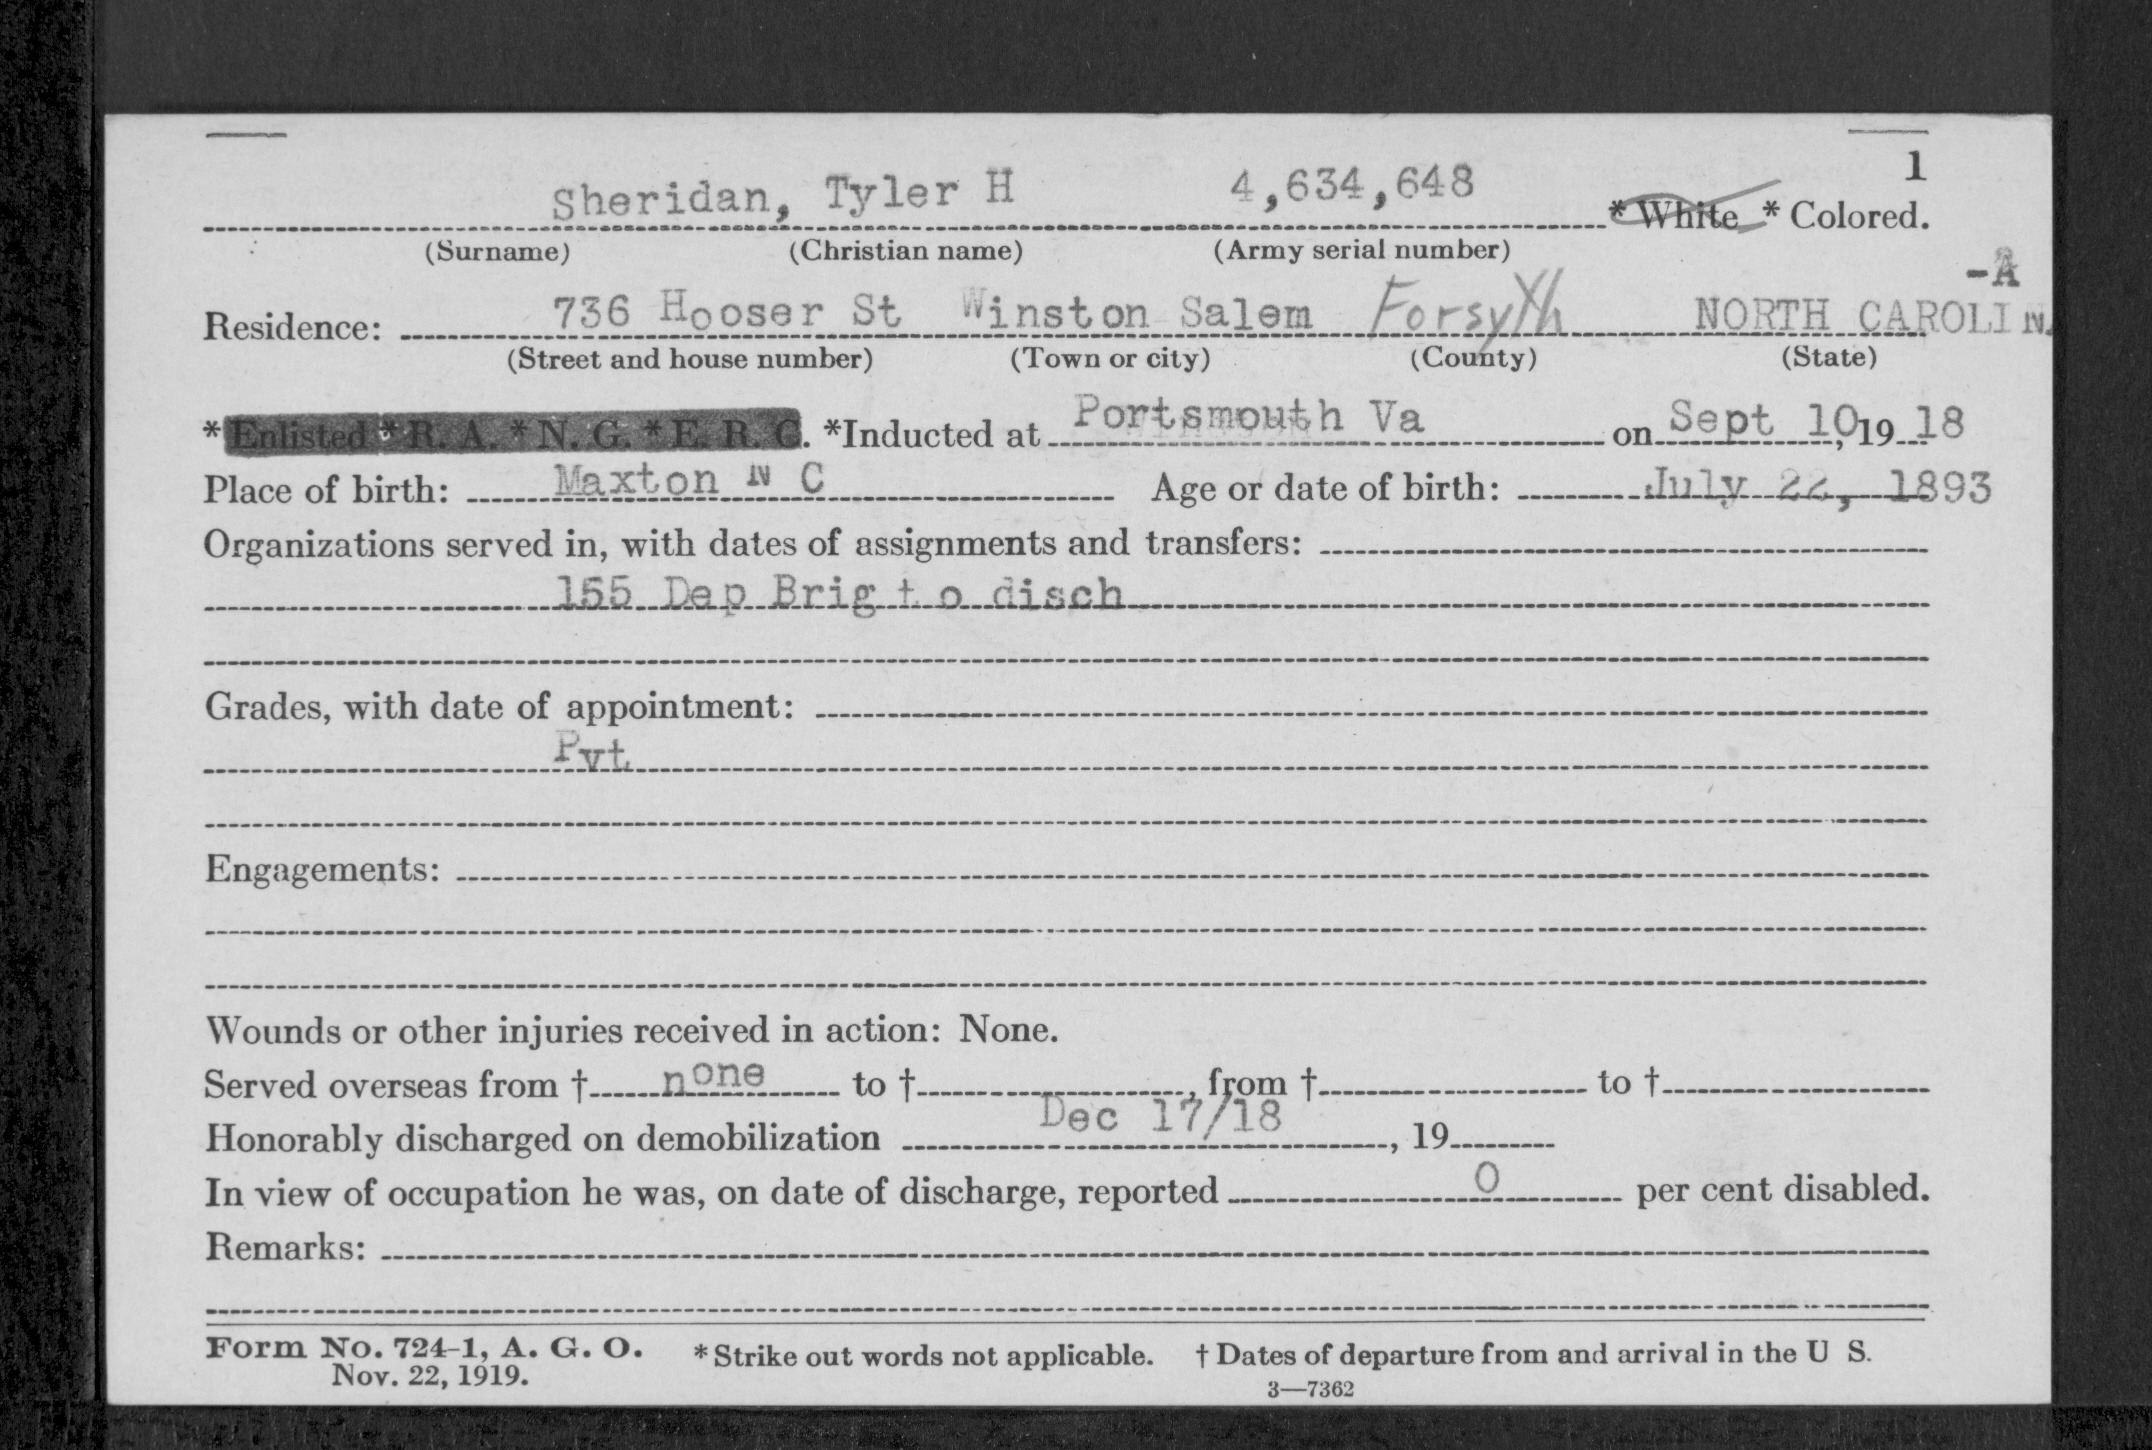 1
Sheridan, Tyler H 4,634,648 * White * Colored.
(Surname) (Christian name) (Army serial number)
-A
Residence: 736 Hooser St Winston Salem Forsyth NORTH CAROLIN
(Street and house number) (Town or city) (County) (State)
*Enlisted * R. A. * N. G. * E. R. C. *Inducted at Portsmouth Va on Sept 10, 19 18
Place of birth: Maxton N C Age or date of birth: July 22, 1893
Organizations served in, with dates of assignments and transfers:
155 Dep Brig to disch
Grades, with date of appointment:
Pvt
Engagements:
Wounds or other injuries received in action: None.
Served overseas from † none to †, from † to †
Honorably discharged on demobilization Dec 17/18, 19
In view of occupation he was, on date of discharge, reported 0 per cent disabled.
Remarks:
Form No. 724-1, A. G. O. * Strike out words not applicable. † Dates of departure from and arrival in the U S.
Nov. 22, 1919.
3—7362